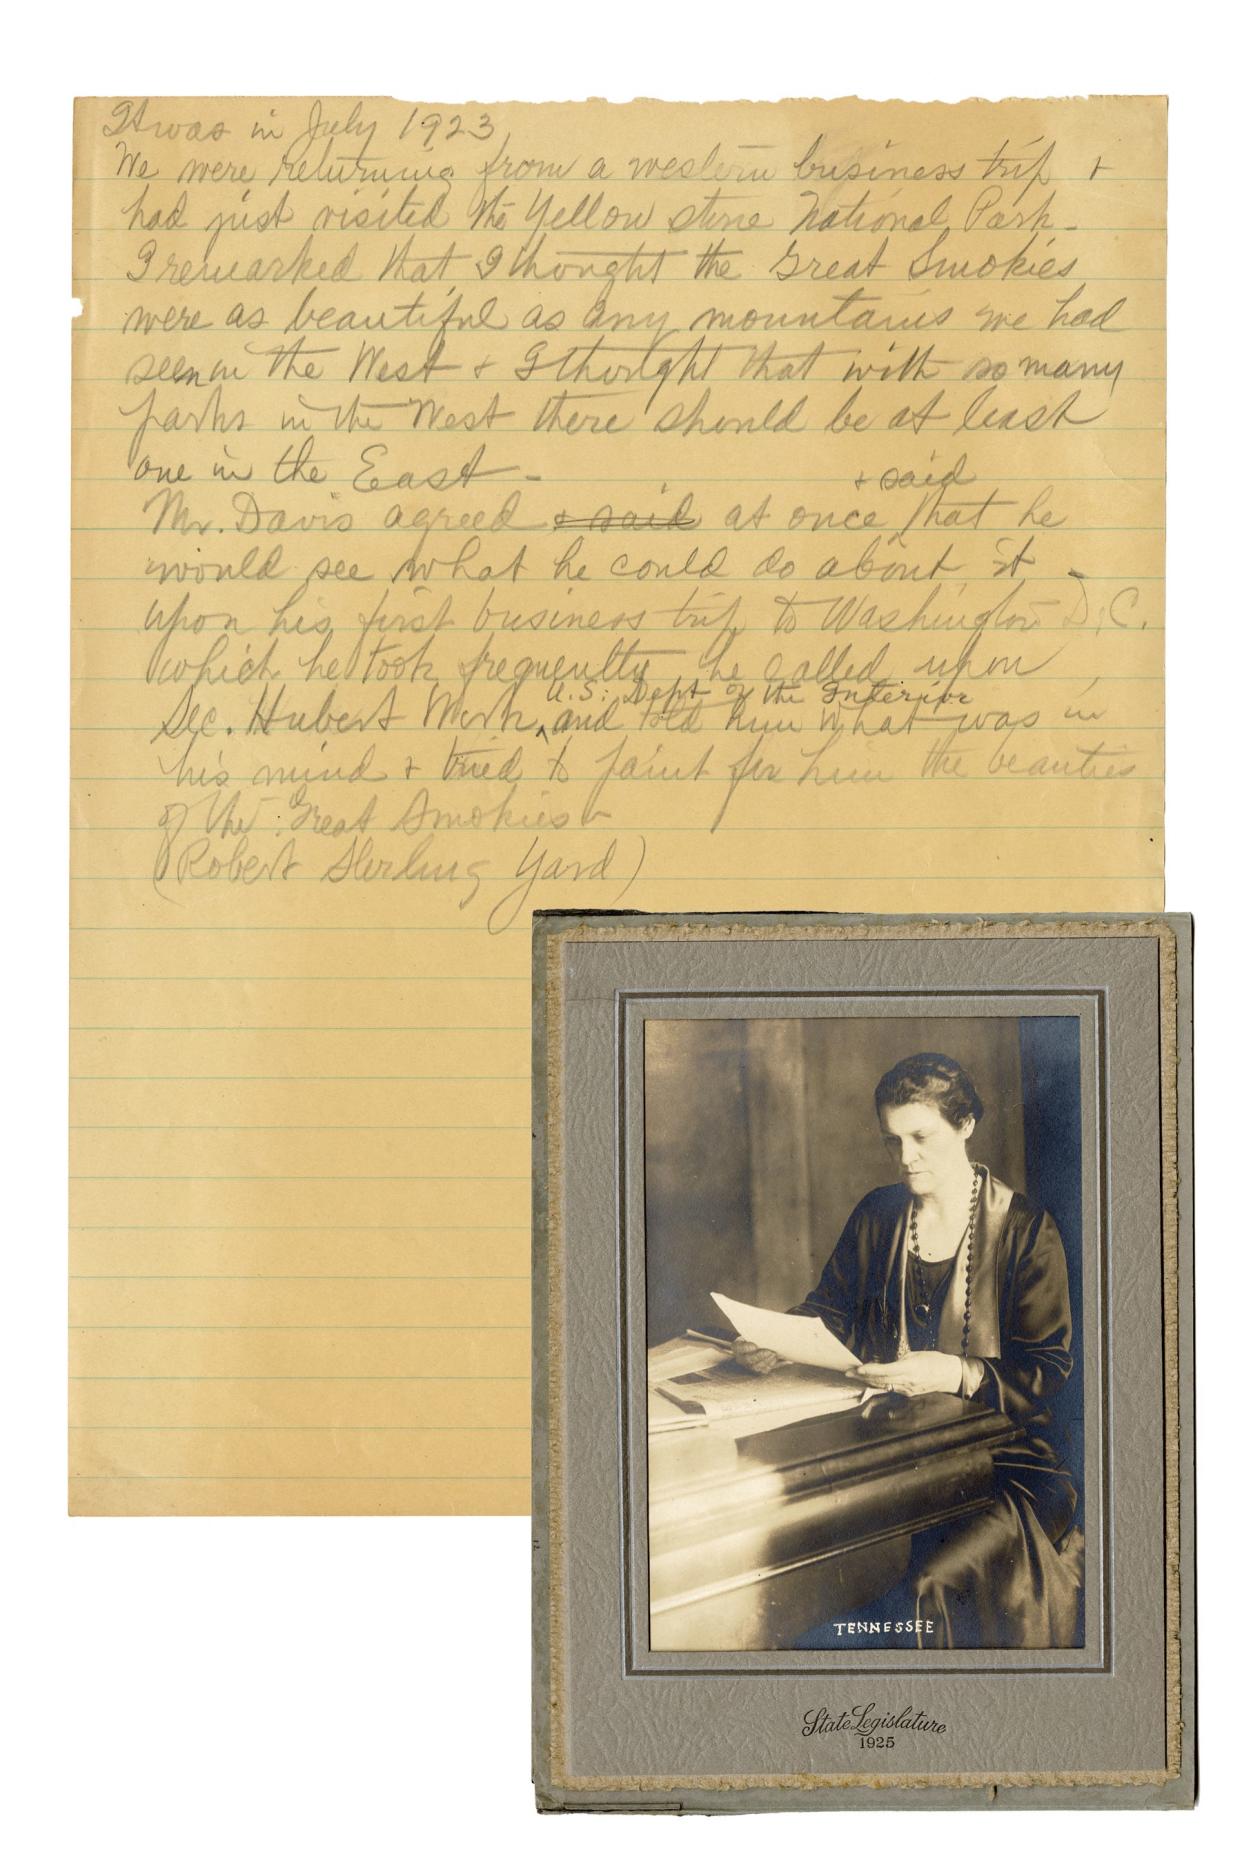 It was in July 1923
We were returning from a western business trip +
had just visited the Yellow stone National Park -
I remarked that I thought the Great Smokies
were as beautiful as any mountains we had
seen in the West + I thought that with so many
parks in the West there should be at least
one in the East -
+ said
Mr. Davis agreed + said at once that he
would see what he could do about it -
upon his first business trip to Washington D.C.
which he took frequently he called upon
U.S. Dept of the Interior
Sec. Hubert Work, and told him what was in
his mind + tried to paint for him the beauties
of the Great Smokies -
(Robert Sterling Yard)
TENNESSEE
State Legislature
1925